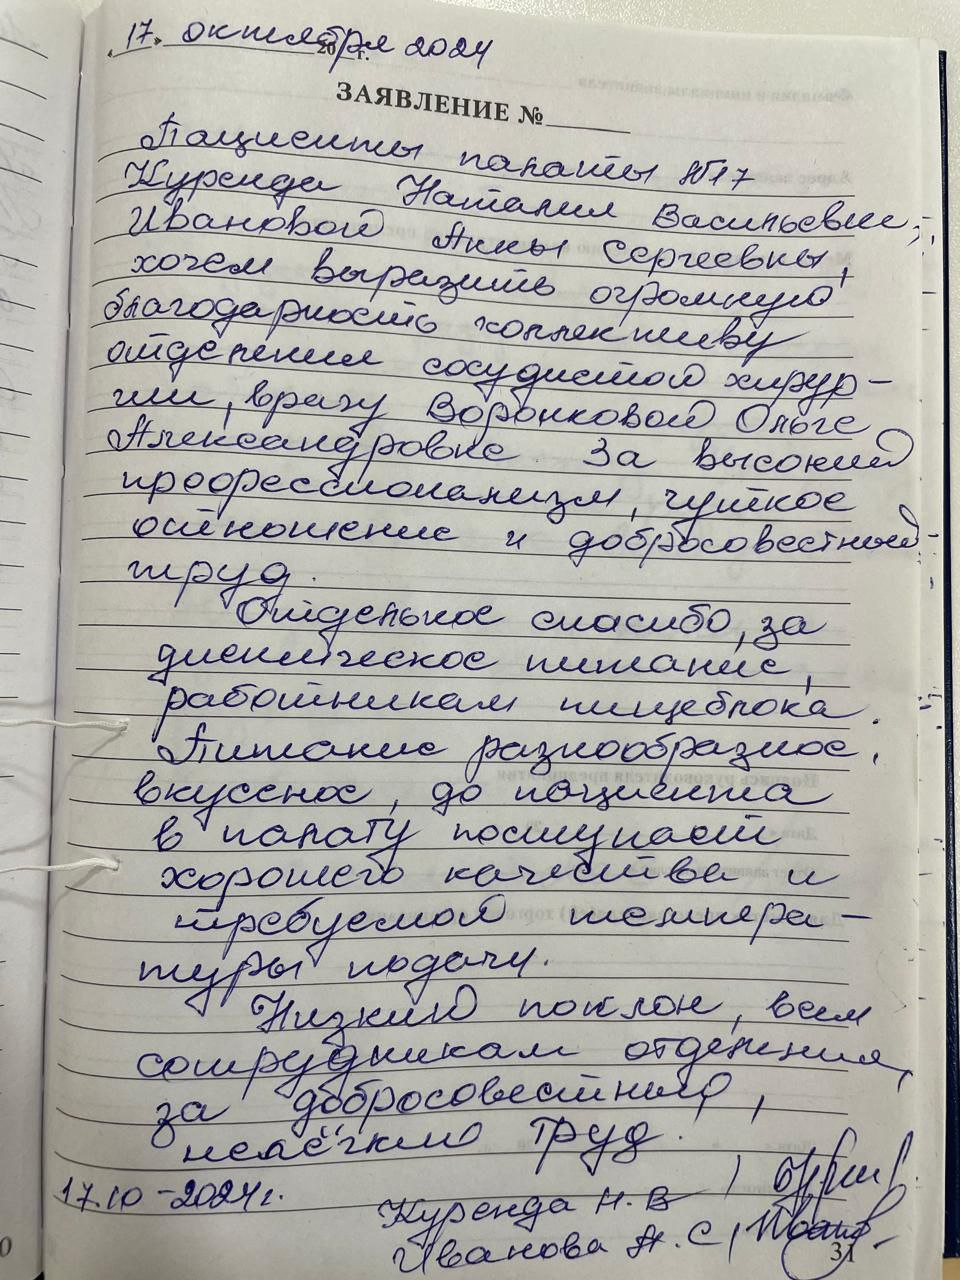 « 17 » октября 2024
20 г.
ЗАЯВЛЕНИЕ №
Пациенты палаты №17
Куренда Наталия Васильевны,
Ивановой Анны Сергеевны,
хочем выразить огромную
благодарность коллективу
отделения сосудистой хирур-
гии, врачу Воронковой Ольге
Александровне. За высокий
профессионализм, чуткое
отношение и добросовестный
труд.
Отдельное спасибо, за
диетическое питание,
работникам пищеблока.
Питание разнообразное,
вкусное, до пациента
в палату поступает
хорошего качества и
требуемой темпера-
туры подачи.
Низкий поклон, всем
сотрудникам отделения,
за добросовестный,
нелёгкий труд.
17.10-2024г.
Куренда Н. В
Иванова А. С
31